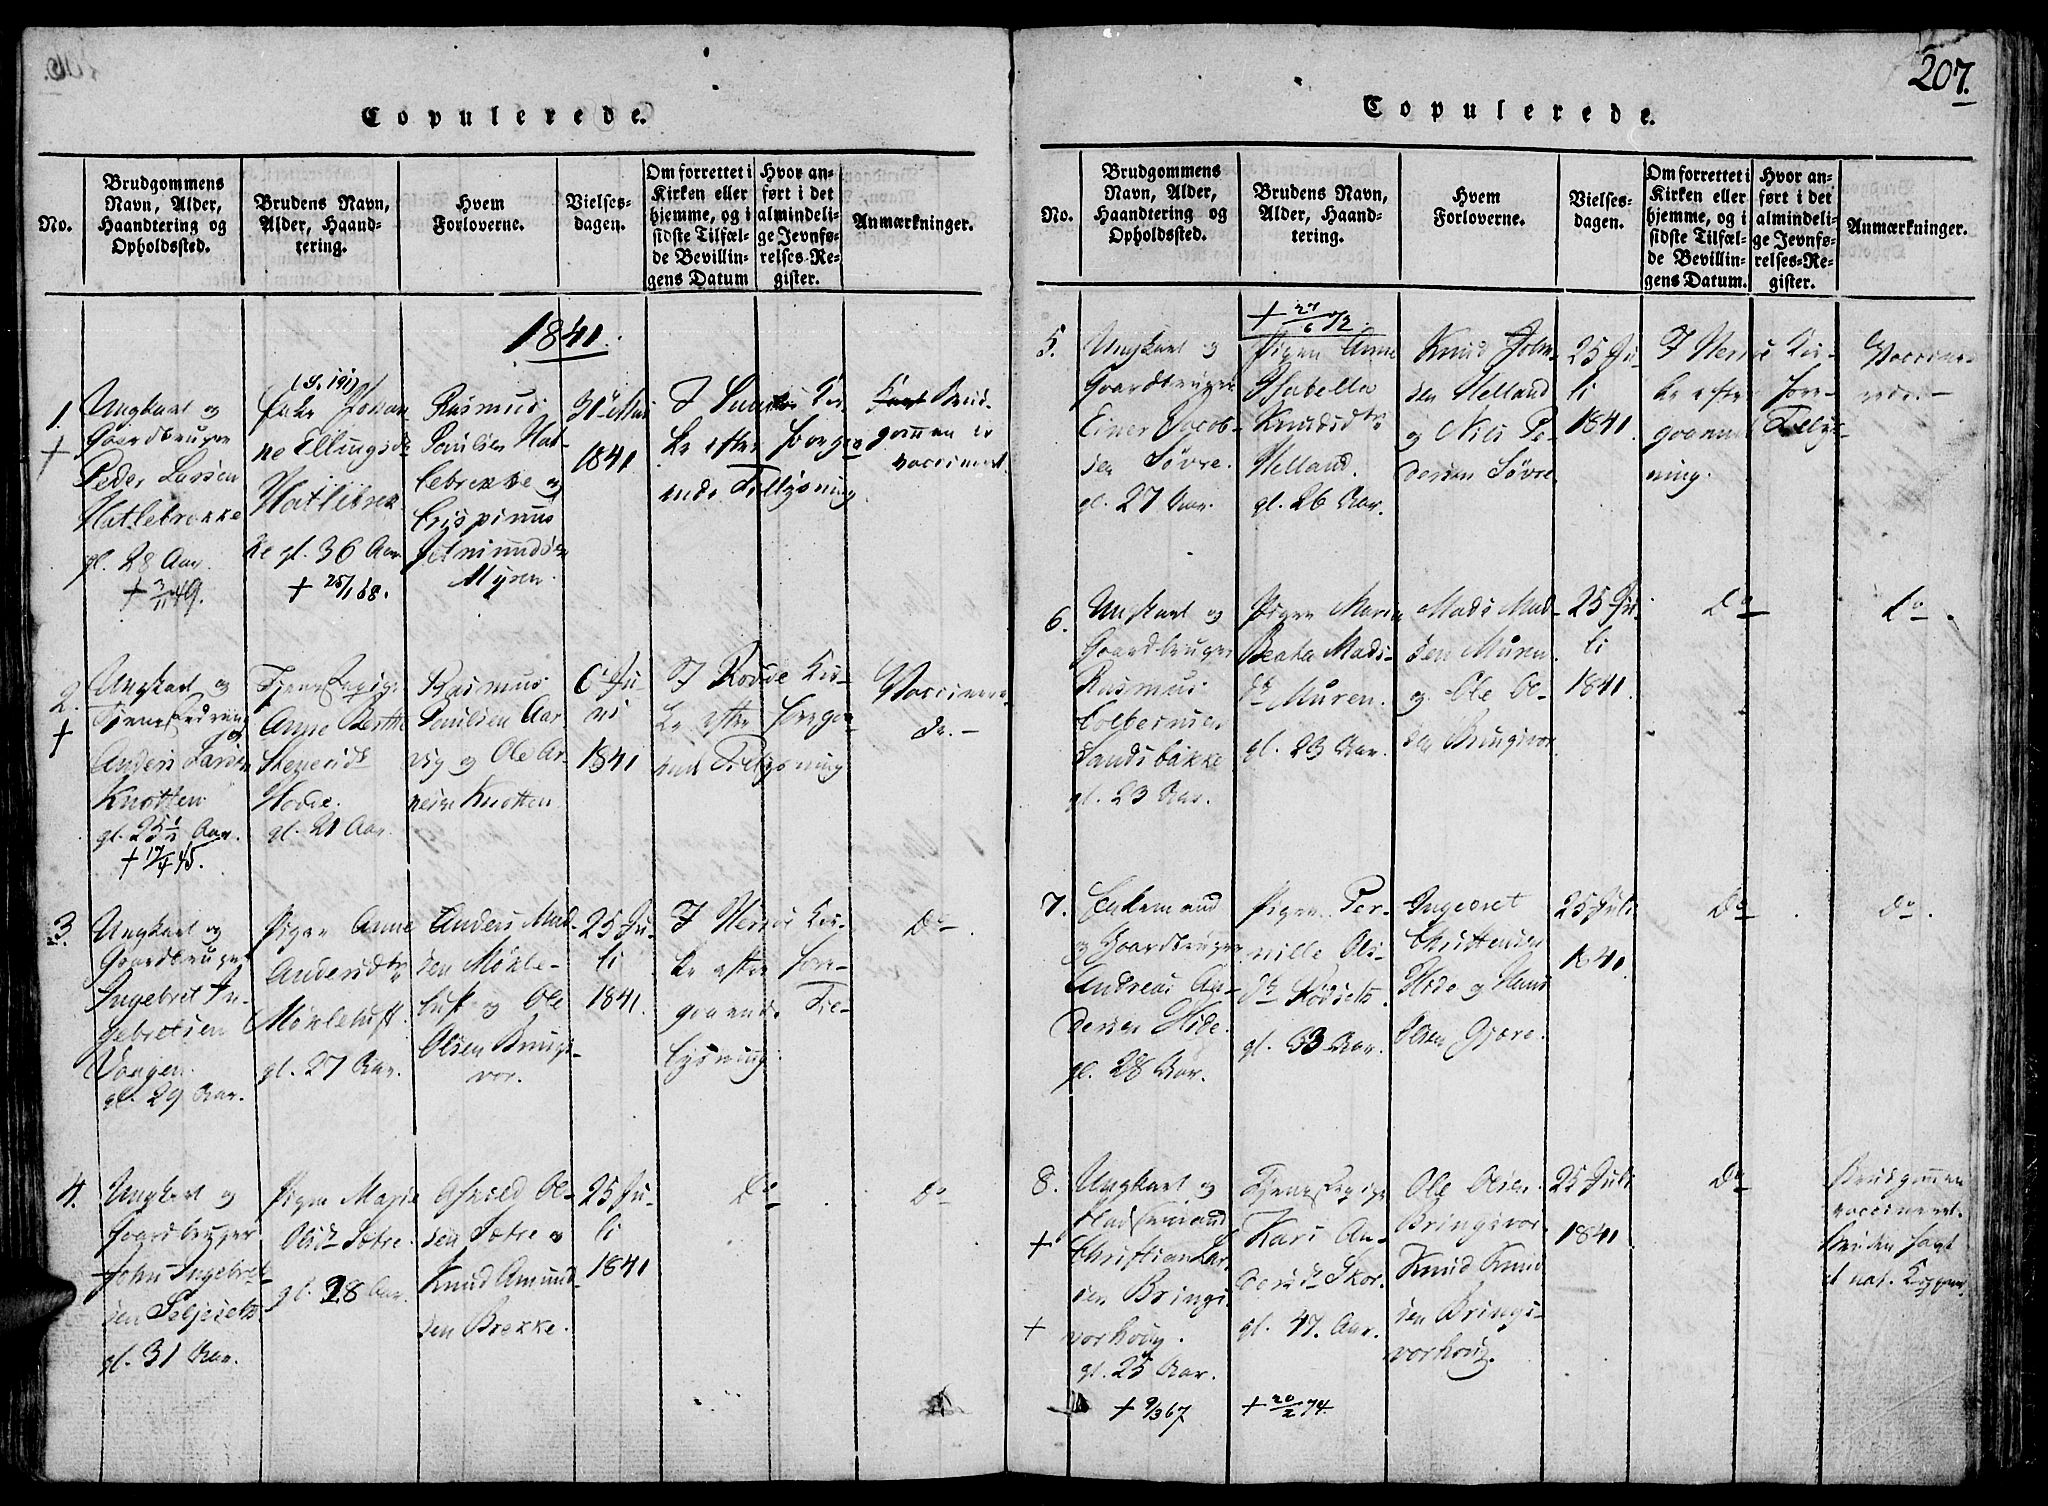 207.
Copulerede.
No.
Brudgommens
Navn, Alder,
Haandtering og
Opholdssted.
Brudens Navn,
Alder, Haand-
tering.
Hvem
Forloverne.
Vielses-
dagen.
Om forrettet i
Kirken eller
hjemme, og i
sidste Tilfæl-
de Bevillin-
gens Datum
Hvor an-
ført i det
almindeli-
ge Jevnfø-
relses-Re-
gister.
Anmærkninger.
1841.
1.
+
Ungkarl og
Gaardbruger
Peder Larsen
Hatlebrække
gl. 28 Aar
+ 3/11 49.
(S. 191)
Enke Johan
ne Ellingsdr
Hatlebræk
ke gl. 36 Aar
+ 25/1 68.
Rasmus
Poulsen Hat-
lebrekke og
Crispinus
Myren.
31te Mai
1841
I Kir-
ke efter foregaa
ende Tillysning
Brud-
gommen er
vaccineret.
2.
+
Ungkarl og
Tjenestedreng
Anders Larsen
Knotten
gl. 25 1/2 Aar.
+ 17/4 45.
Tjenestepige
Anne Berthe
Hovde.
gl. 21 Aar.
Rasmus
Poulsen Aar-
vig og Ole Ar-
nesen Knotten
6te Ju
ni
1841
I Rovde Kir-
ke efter foregaa
ende Tillysning
Vaccinere
de. -
3.
Ungkarl og
Gaardbruger
Ingebret In-
gebretsen
Vaagen.
gl. 29 Aar.
Pigen Anne
Andersdtr
Møklebust.
gl. 27 Aar.
Anders Mad-
sen Møkle-
bust og Ole
Olsen Brings-
vor.
25 Ju-
li
1841.
I Herrøe Kir-
ke efter fore-
gaaende Til-
lysning.
Do
4.
Ungkarl og
Gaardbruger
John Ingebret-
sen Seljeseth
gl. 31 Aar.
Pigen Marie
Olsdr Sætre.
gl. 28 Aar.
Ol-
sen Sætre og
Knud Amund-
sen Brekke.
25 Ju-
li
1841
Do
Do
Copulerede.
No.
Brudgommens
Navn, Alder,
Haandtering og
Opholdssted.
Brudens Navn,
Alder, Haand-
tering.
Hvem
Forloverne.
Vielses-
dagen.
Om forrettet i
Kirken eller
hjemme, og i
sidste Tilfæl-
de Bevillin-
gens Datum.
Hvor an-
ført i det
almindeli-
ge Jevnfø-
relses-Re-
gister.
Anmærkninger.
5.
Ungkarl og
Gaardbruger
Einer Jacob-
sen Søvre.
gl. 27 Aar.
+ 27/6 72
Pigen Anne
Isabella
Knudsdtr
Helland.
gl. 26 Aar.
Knud John-
sen Helland
og Nils Pe-
dersen Søvre
25 Ju-
li
1841.
I Herrøe Kir-
ke efter fore-
gaaende Tillys-
ning.
Vaccine-
rede. -
6.
Ungkarl og
Gaardbruger
Rasmus
Colbensen
Sandsbakke
gl. 23 Aar.
Pigen Maren
Beata Mads-
dr Muren.
gl. 23 Aar.
Mads Mad-
sen Muren
og Ole Ol-
sen Bringsvor.
25 Ju-
li
1841.
Do
Do.
7.
Enkemand
og Gaardbruger
Andreas An-
dersen Hide.
gl. 28 Aar.
Pigen Per-
nille Ols-
dr Rødseth.
gl. 33 Aar.
Ingebret
Christensen
Hide og Hans
Olsen Gjære.
25 Juli
1841.
Do
Do.
8.
+
+
Ungkarl og
Pladsemand
Christian Lar-
sen Brings-
vorhoug.
gl. 25 Aar.
+ 9/3 67
Tjenestepige
Kari An-
dersdr Skor.
gl. 47. Aar.
+ 20/2 74.
Ole Olsen
Bringsvor.
Knud Knud
sen Brings-
vorhoug.
25 Juli
1841.
Do
Brudgommen
vaccineret.
Bruden havt
d. nat. Kopper.